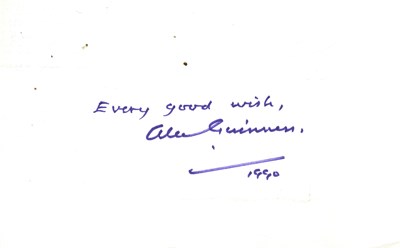 Every good wish,
Alec Guinness.
1990